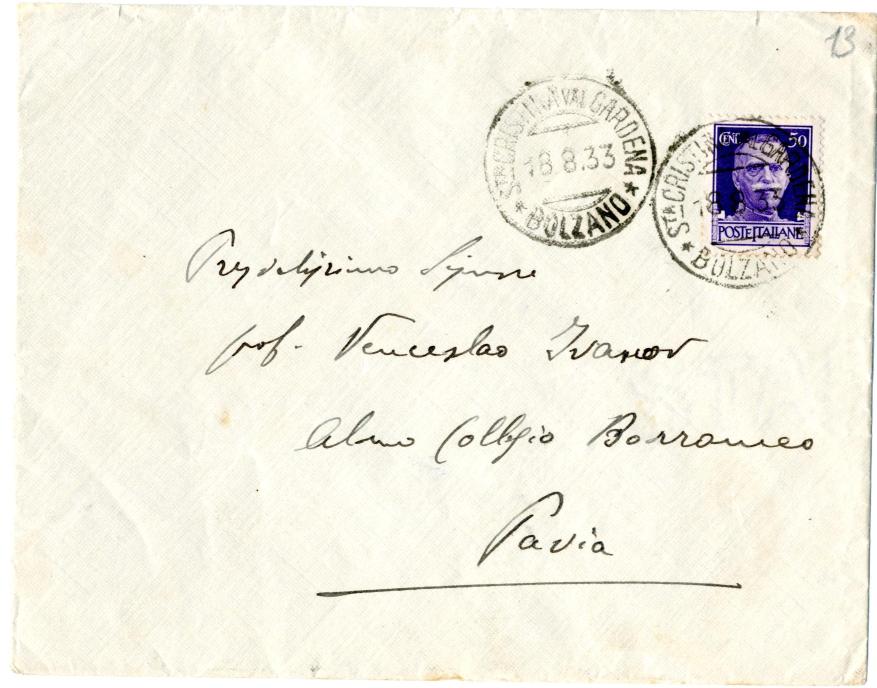 13
STA CRISTINA VAL GARDENA
18 8.33
* BOLZANO *
CENT. 50
POSTE ITALIANE
STA CRISTINA VAL GARDENA
18 8.33
* BOLZANO *
Pregiatissimo Signore
prof. Venceslao Ivanov
Almo Collegio Borromeo
Pavia